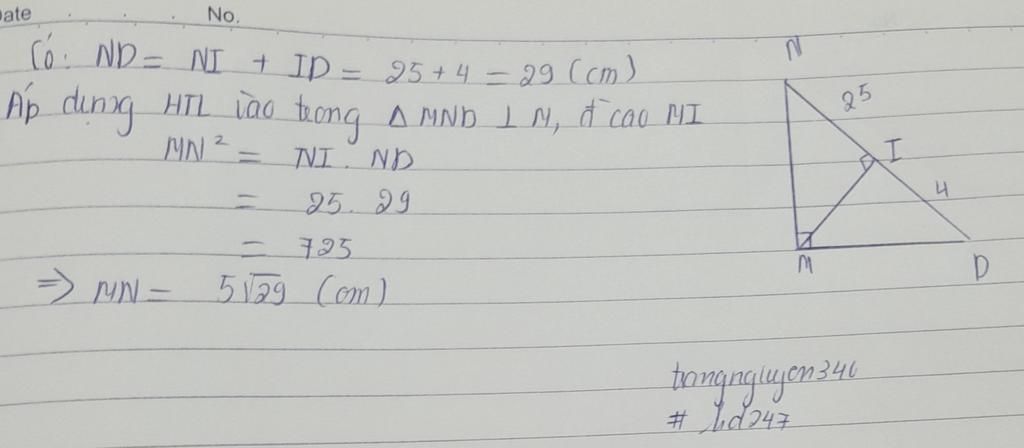 Date No.
Có: ND = NI + ID = 25 + 4 = 29 (cm)
Áp dụng HTL vào trong Δ MND ⊥ M, đ cao MI
MN² = NI . ND
= 25. 29
= 725
=> MN = 5√29 (cm)
N
25
I
4
M
D
# hd247